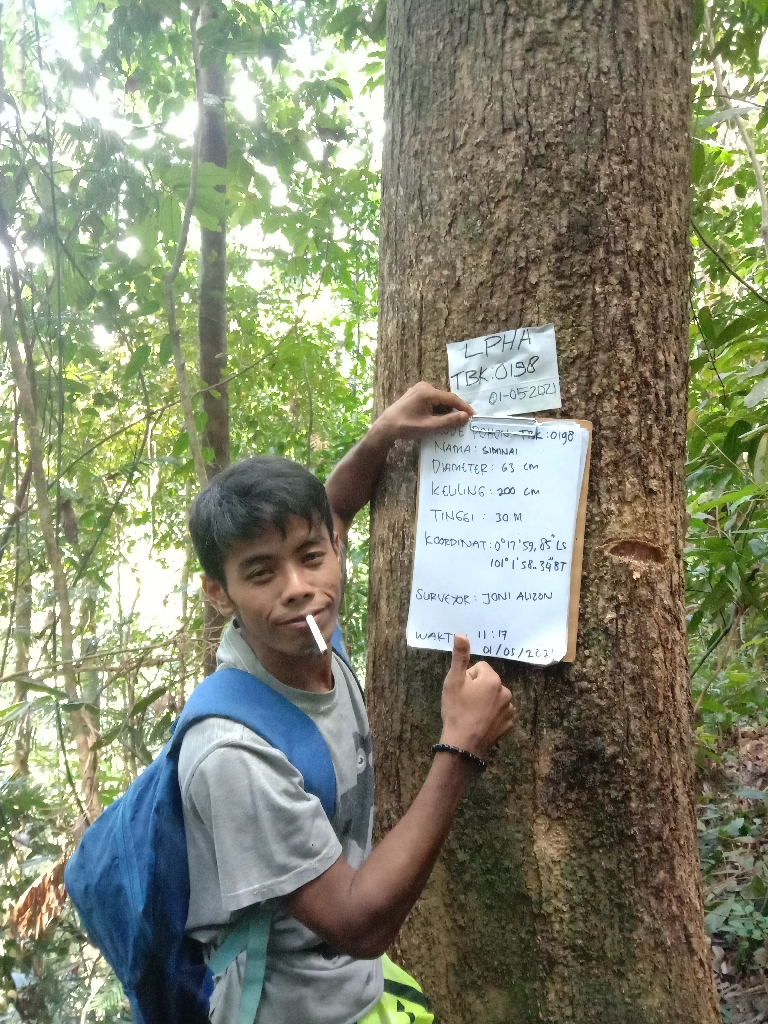 LPHA
TBK:0198
01-05-2021
POHON: TBK:0198
NAMA: SIMNAI
DIAMETER: 63 cm
KELLING: 200 cm
TINGGI: 30 M
KOORDINAT: 0°17'59,85" LS
101°1'58.34" BT
SURVEYOR: JONI ALIZON
11:17
01/05/2021